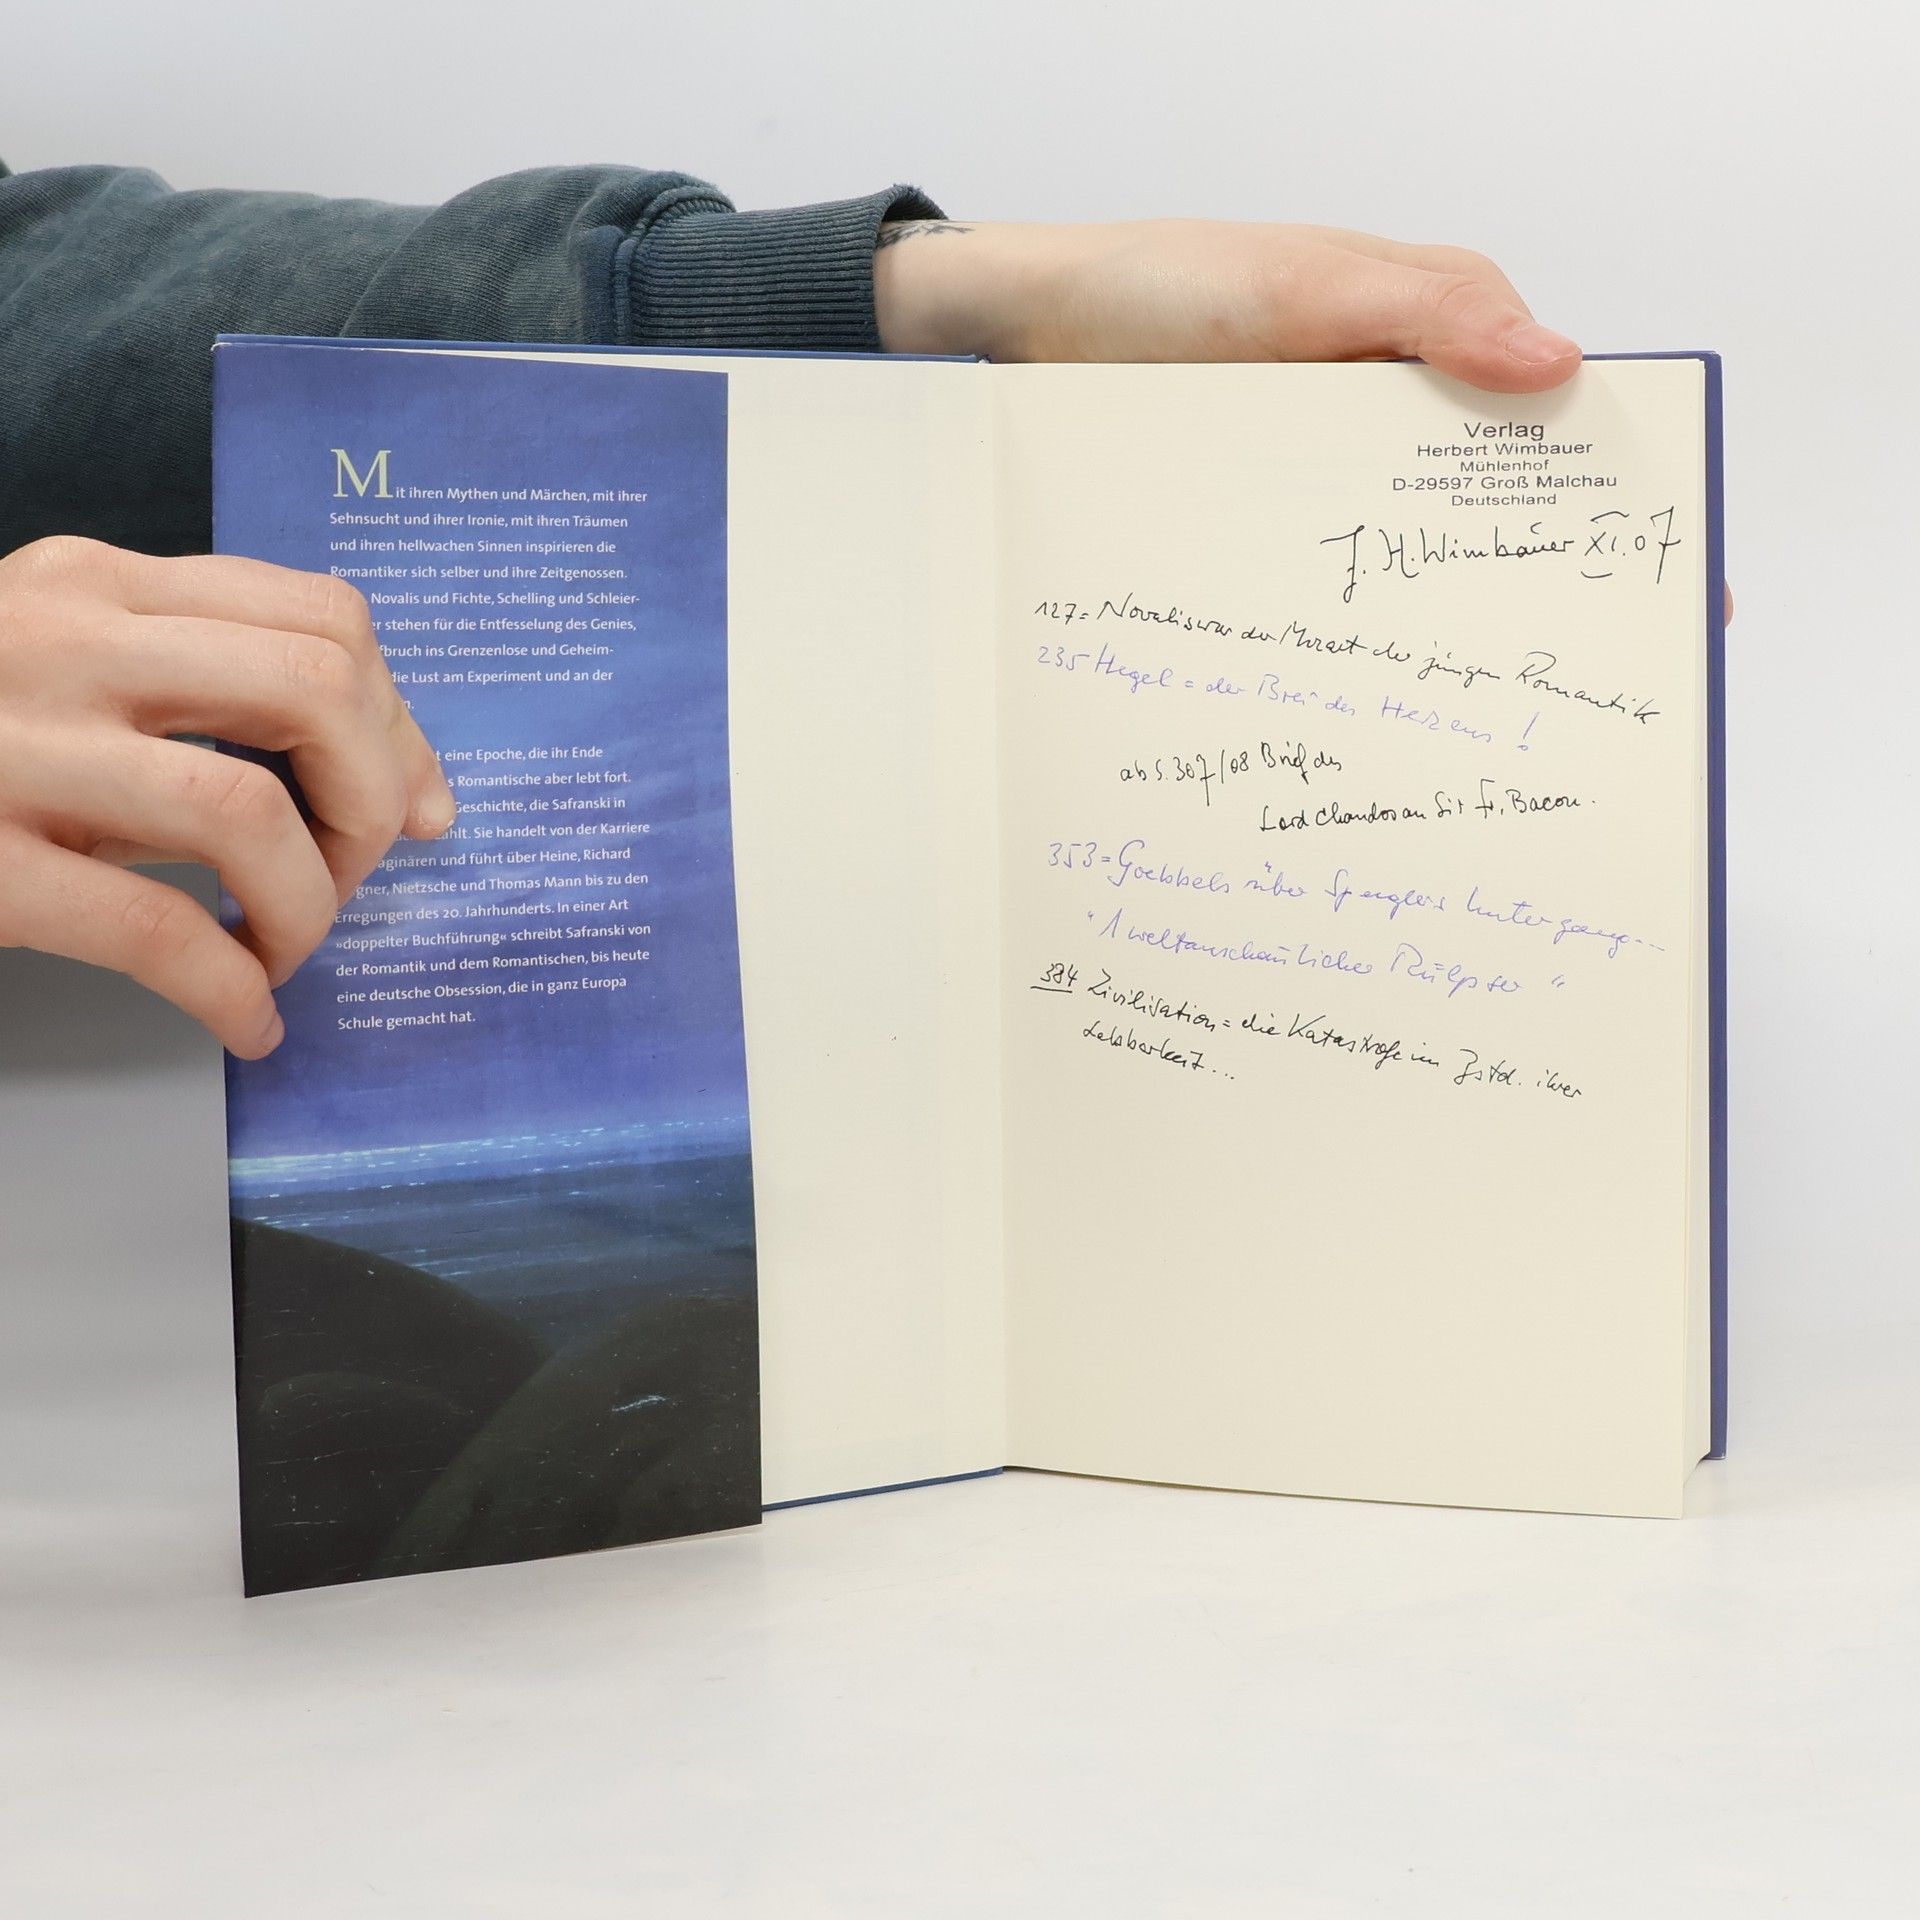 Mit ihren Mythen und Märchen, mit ihrer
Sehnsucht und ihrer Ironie, mit ihren Träumen
und ihren hellwachen Sinnen inspirieren die
Romantiker sich selber und ihre Zeitgenossen.
Novalis und Fichte, Schelling und Schleier-
er stehen für die Entfesselung des Genies,
fbruch ins Grenzenlose und Geheim-
die Lust am Experiment und an der
n.
t eine Epoche, die ihr Ende
s Romantische aber lebt fort.
Geschichte, die Safranski in
ählt. Sie handelt von der Karriere
aginären und führt über Heine, Richard
gner, Nietzsche und Thomas Mann bis zu den
Erregungen des 20. Jahrhunderts. In einer Art
»doppelter Buchführung« schreibt Safranski von
der Romantik und dem Romantischen, bis heute
eine deutsche Obsession, die in ganz Europa
Schule gemacht hat.
Verlag
Herbert Wimbauer
Mühlenhof
D-29597 Groß Malchau
Deutschland
J. H. Wimbauer XI.07
127 = Novalis war der Mozart der jungen Romantik
235 Hegel = der Brei des Herzens!
ab S. 307/08 Brief des
Lord Chandos an Sir Fr. Bacon.
353 = Goebbels über Spenglers Untergang...
"1 weltanschaulicher Rülpser"
384 Zivilisation = die Katastrofe im Zstd. ihrer
Lebbarkeit...